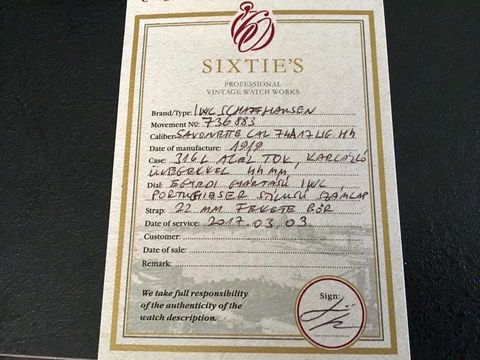 SIXTIE'S
PROFESSIONAL
VINTAGE WATCH WORKS
Brand/Type: IWC SCHAFFHAUSEN
Movement No: 736883
Caliber: SAVONETTE CAL
Date of manufacture: 1919
Case: 316 L ACÉL TOK, KARCÁLLÓ
ÜVEGEKKEL 44 MM,
Dial: EGYEDI GYÁRTÁSÚ IWC,
PORTUGIESER STÍLUSÚ SZÁMLAP
Strap: 22 MM FEKETE BŐR
Date of service: 2017. 03. 03.
Customer:
Date of sale:
Remark:
We take full responsibility
of the authenticity of the
watch description.
Sign: